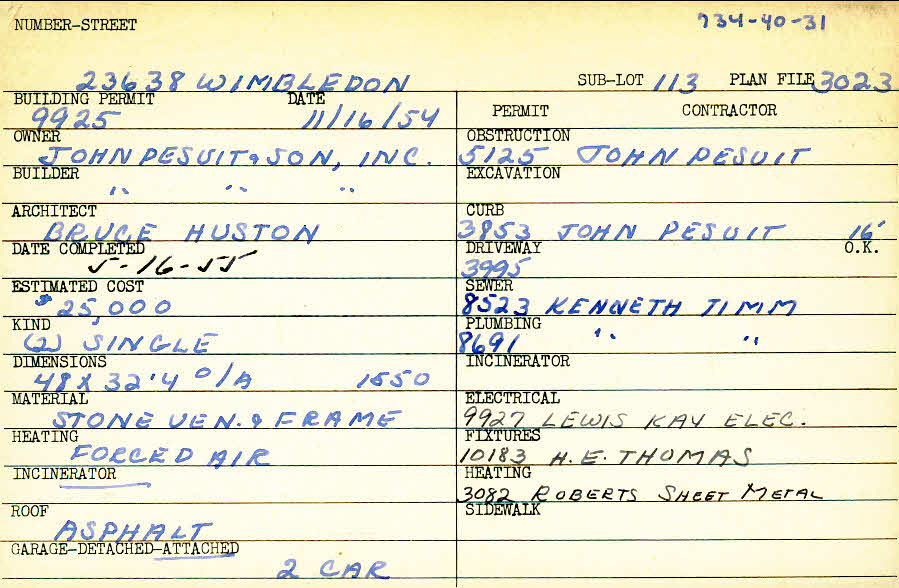 NUMBER-STREET 734-40-31
23638 WIMBLEDON SUB-LOT 113 PLAN FILE 3023
BUILDING PERMIT DATE PERMIT CONTRACTOR
9925 11/16/54
OWNER OBSTRUCTION
JOHN PESUIT & SON, INC. 5125 JOHN PESUIT
BUILDER EXCAVATION
" " "
ARCHITECT CURB
BRUCE HUSTON 3853 JOHN PESUIT 16'
DATE COMPLETED DRIVEWAY O.K.
5-16-55 3995
ESTIMATED COST SEWER
$25,000 8523 KENNETH TIMM
KIND PLUMBING
(2) SINGLE 8691 " "
DIMENSIONS INCINERATOR
48 X 32'4 O/A 1550
MATERIAL ELECTRICAL
STONE VEN. & FRAME 9927 LEWIS KAY ELEC.
HEATING FIXTURES
FORCED AIR 10183 H.E. THOMAS
INCINERATOR HEATING
3082 ROBERTS SHEET METAL
ROOF SIDEWALK
ASPHALT
GARAGE-DETACHED-ATTACHED
2 CAR